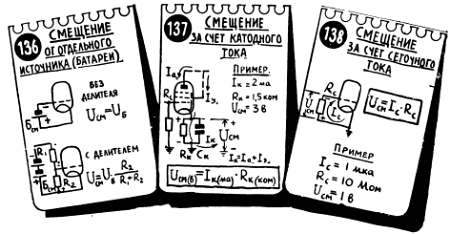 136
СМЕЩЕНИЕ
ОТ ОТДЕЛЬНОГО
ИСТОЧНИКА (БАТАРЕИ)
БЕЗ
ДЕЛИТЕЛЯ
Uсм=Uб
Бсм
С ДЕЛИТЕЛЕМ
R1
R2
Uсм=Uб R2/(R1+R2)
137
СМЕЩЕНИЕ
ЗА СЧЕТ КАТОДНОГО
ТОКА
ПРИМЕР.
Iк=2ма
Rк=1,5ком
Uсм=3в
Iа
Iэ
Rс
Uсм
Iк
Rк
Cк
Iк=Iа+Iэ
Uсм(в)=Iк(ма)·Rк(ком)
138
СМЕЩЕНИЕ
ЗА СЧЕТ СЕТОЧНОГО
ТОКА
Rс
Uсм
Iс
Uсм=Iс·Rс
ПРИМЕР
Iс=1мка
Rс=10Мом
Uсм=1в